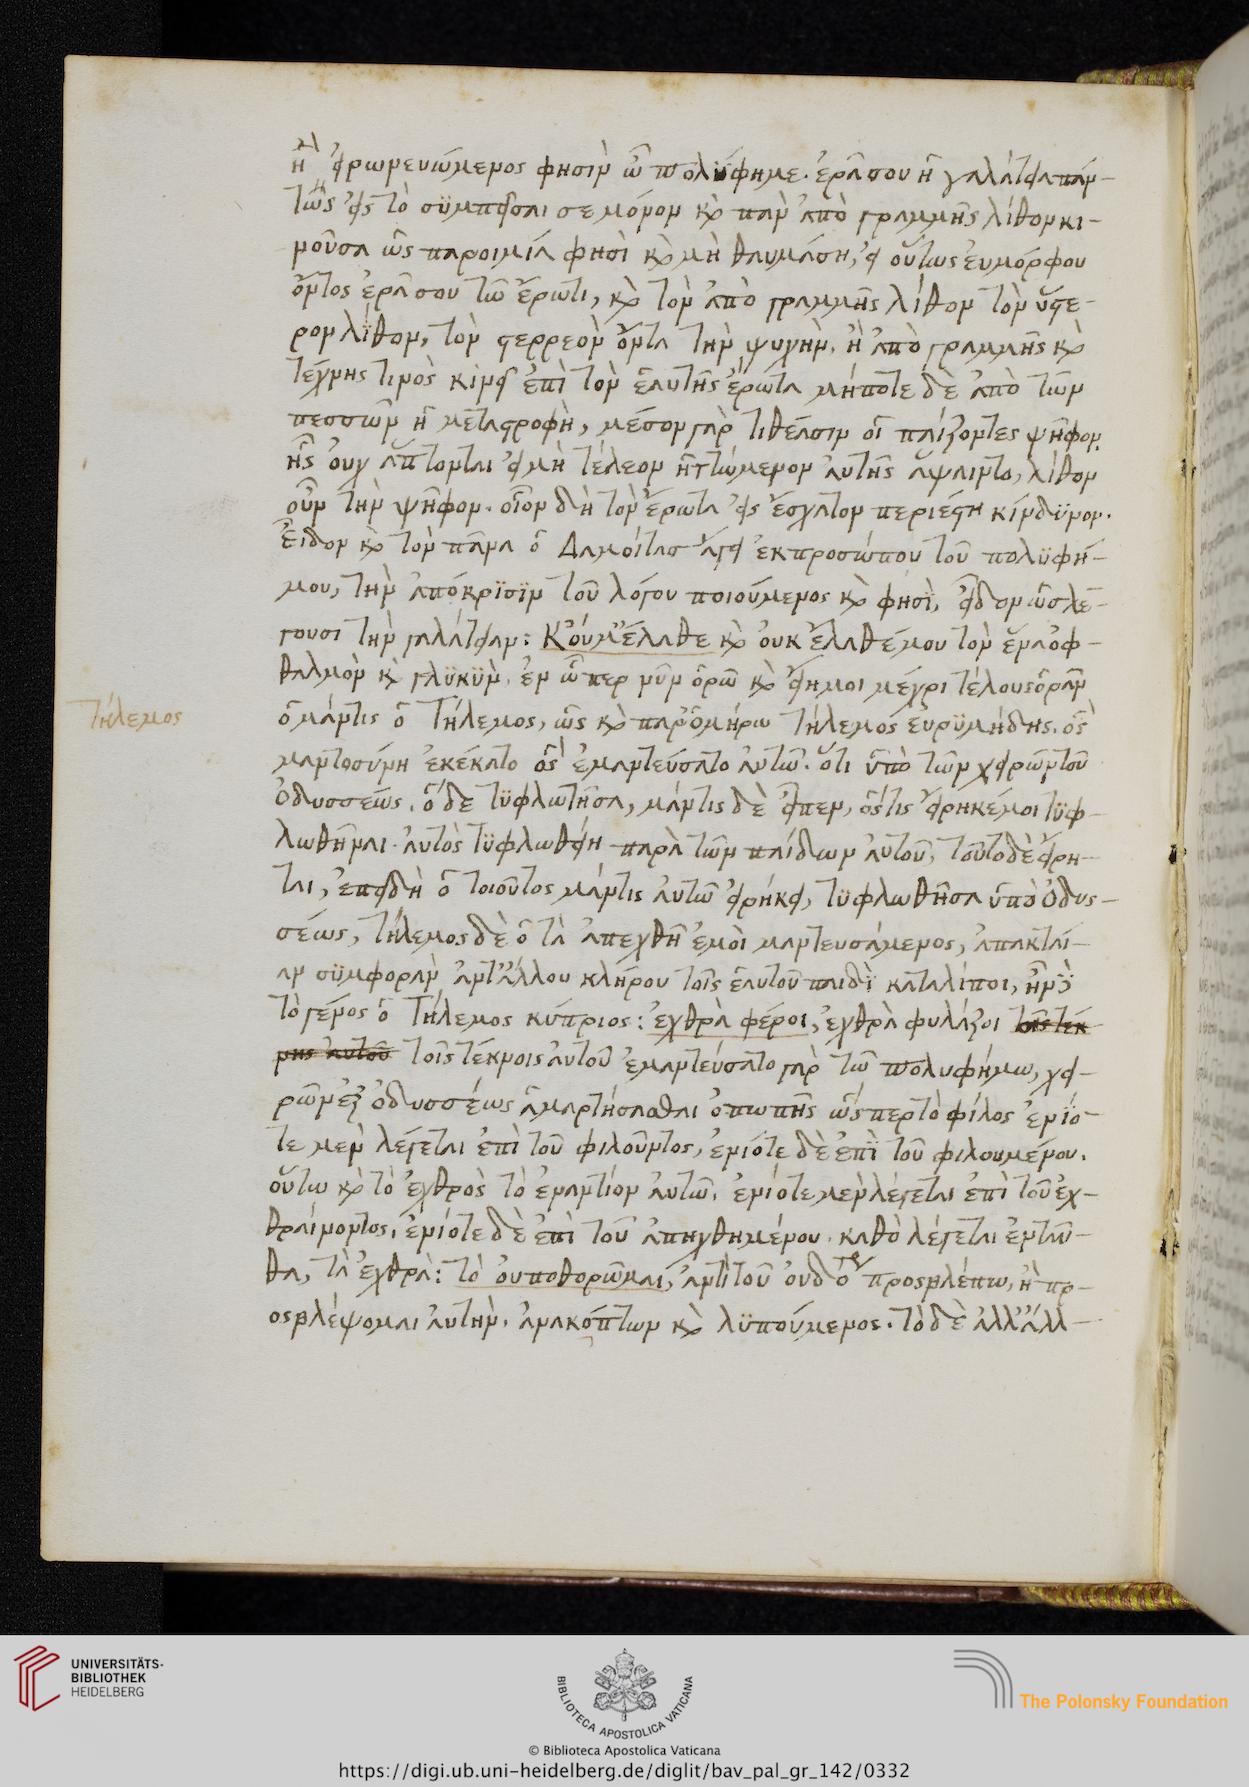 ἢ εἰρωνευόμενος φησὶν ὦ πολύφημε. ἐρᾶ σου ἡ γαλάτεια παν-
τὼς εἰς τὸ συμπεῖσαι σε μόνον καὶ πᾶν ἀπὸ γραμμῆς λίθον κι-
νοῦσα ὡς παροιμία φησὶ καὶ μὴ θαυμάση, εἰ οὕτως εὐμόρφου
ὄντος ἐρᾶ σου τῶ ἔρωτι, καὶ τὸν ἀπὸ γραμμῆς λίθον τὸν ὕστε-
ρον λίθον, τὸν στερρεὸν ὄντα τὴν ψυχὴν. ἢ ἀπὸ γραμμῆς καὶ
τέχνης τινὸς κινεῖ ἐπὶ τὸν ἑαυτῆς ἔρωτα μήποτε δὲ ἀπὸ τῶν
πεσσῶν ἡ μεταστροφὴ, μέσον γὰρ τιθέασιν οἱ παίζοντες ψῆφον.
ἧς οὐχ ἅπτονται εἰ μὴ τέλεον ἡττώμενον αὐτῆς ἅψαιντο, λίθον
οὖν τὴν ψῆφον. οἷον δὴ τὸν ἔρωτα εἰς ἔσχατον περιέστη κίνδυνον.
Εἶδον καὶ τὸν πᾶνα ὁ Δαμοίτας ἄγει ἐκ προσώπου τοῦ πολυφή-
μου, τὴν ἀπόκρισιν τοῦ λόγου ποιούμενος καὶ φησὶ, εἶδον ὡς λέ-
γουσι τὴν γαλάτειαν: Κ'οὔμ' ἔλαθε καὶ οὐκ ἔλαθέ μου τὸν ἕνα ὀφ-
θαλμὸν καὶ γλυκὺν. ἐν ὧπερ νῦν ὁρῶ καὶ εἴη μοι μέχρι τέλους ὁρᾶν
ὁ μάντις ὁ Τήλεμος, ὡς καὶ παρ' ὁμήρω τήλεμος εὐρυμήδης. ὃς
μαντοσύνη ἐκέκατο ὃς ἐμαντεύσατο αὐτῶ. ὅτι ὑπὸ τῶν χειρῶν τοῦ
Ὀδυσσέως. ὅδε τυφλωτῆσα, μάντις δὲ εἶπεν, ὅστις εἴρηκέ μοι τυφ-
λωθῆναι. αὐτὸς τυφλωθείη παρὰ τῶν παίδων αὐτοῦ, τοῦτο δὲ εἴρη-
ται, ἐπειδὴ ὁ τοιοῦτος μάντις αὐτῶ εἰρήκει, τυφλωθῆσα ὑπὸ Ὀδυσ-
σέως, τήλεμος δὲ ὁ τὰ ἀπεχθῆ ἐμοὶ μαντευσάμενος, ἀπακταί-
αν συμφορὰν ἀντ' ἄλλου κλήρου τοῖς ἑαυτοῦ παιδὶ καταλίποι,
τὸ γένος ὁ Τήλεμος κύπριος: ἐχθρὰ φέροι, ἐχθρὰ φυλάξοι τοῖς τέκ-
νης αὐτοῦ τοῖς τέκνοις αὐτοῦ ἐμαντεύσατο γὰρ τῶ πολυφήμω, χει-
ρῶν ἐξ ὀδυσσέως ἁμαρτήσασθαι ὀπωπῆς ὥσπερ τὸ φίλος ἐνίο-
τε μεν λέγεται ἐπὶ τοῦ φιλοῦντος, ἐνιότε δὲ ἐπὶ τοῦ φιλουμένου.
οὕτω καὶ τὸ ἐχθρὸς τὸ ἐναντίον αὐτῶ, ἐνιότε μὲν λέγεται ἐπὶ τοῦ ἐχ-
θραίνοντος, ἐνιότε δὲ ἐπὶ τοῦ ἀπηχθημένου. καθὸ λέγεται ἐνταῦ-
θα, τὰ ἐχθρὰ: τὸ οὐ ποθορῶμαι, ἀντὶ τοῦ οὐδ' ὅτε προσβλέπω, ἢ πρ-
οσβλέψομαι αὐτὴν. ἀνακόπτων καὶ λυπούμενος. τὸ δὲ ἀλλ' ἄλλ-
Τήλεμος
UNIVERSITÄTS-
BIBLIOTHEK
HEIDELBERG
BIBLIOTECA APOSTOLICA VATICANA
The Polonsky Foundation
© Biblioteca Apostolica Vaticana
https://digi.ub.uni-heidelberg.de/diglit/bav_pal_gr_142/0332